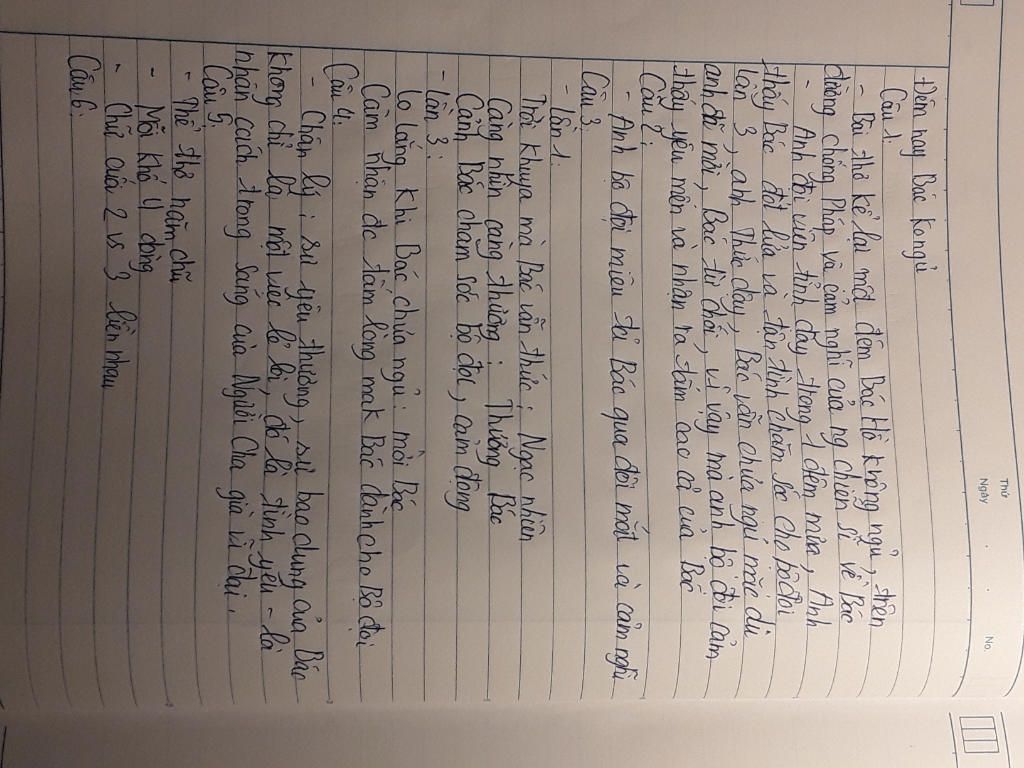 Thứ
Ngày
No.
Đêm nay Bác Ko ngủ
Câu 1:
- Bài thơ kể lại một đêm Bác Hồ không ngủ, trên
đường chống Pháp và cảm nghĩ của ng chiến sĩ về Bác
- Anh đội viên tỉnh dậy trong 1 đêm mưa, Anh
thấy Bác đốt lửa và tận tình chăm sóc cho bộ đội
lần 3, anh thức dậy, Bác vẫn chưa ngủ mặc dù
anh đã mời, Bác từ chối, vì vậy mà anh bộ đội cảm
thấy yêu mến và nhận ra tấm cao cả của Bác
Câu 2:
- Anh bộ đội miêu tả Bác qua đôi mắt và cảm nghĩ
Câu 3:
- Lần 1:
Trời khuya mà Bác vẫn thức: Ngạc nhiên
Càng nhìn càng thương: Thương Bác
Cảnh Bác chăm sóc bộ đội, cảm động
- Lần 3:
lo lắng khi Bác chưa ngủ: mời Bác
Cảm nhận đc tấm lòng mak Bác dành cho Bộ đội
Câu 4:
- Chân lý: sự yêu thương, sự bao dung của Bác
không chỉ là một việc lẻ loi, đó là tình yêu - là
nhân cách trong sáng của Người Cha già vĩ đại.
Câu 5:
- Thể thơ năm chữ
- Mỗi khổ 4 dòng
- Chữ cuối 2 vs 3 liền nhau
Câu 6: